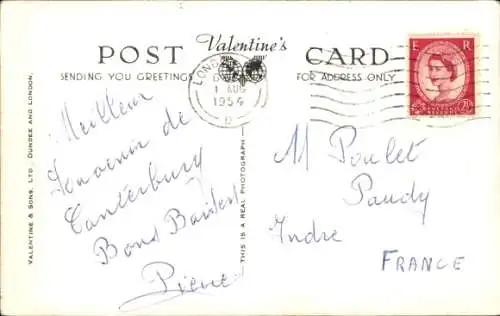 Valentine's
POST CARD
SENDING YOU GREETINGS
FOR ADDRESS ONLY
LONDON
1 AUG
1954
E R
VALENTINE & SONS, LTD. DUNDEE AND LONDON.
THIS IS A REAL PHOTOGRAPH
Meilleur
Souvenir de
Canterbury
Bons Baisers
Pierre
M Poulet
Paudy
Indre
FRANCE